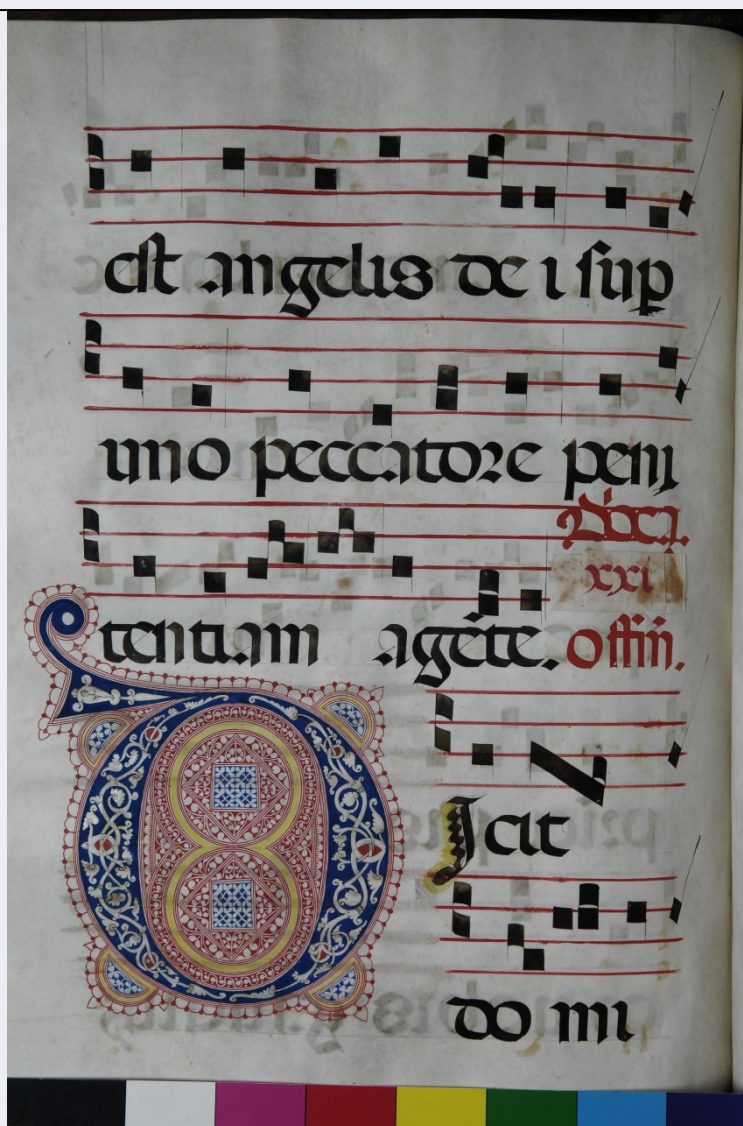 est angelis de i sup
uno peccatore peni
Dõca.
xxi
tentiam agẽte. offiñ.
Dicit
do mi